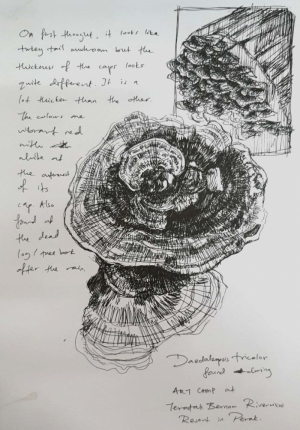 On first thought, it looks like
turkey tail mushroom but the
thickness of the caps looks
quite different. It is a
lot thicker than the other.
The colours are
vibrant red
with
white at
the outermost
of its
cap. Also
found at
the dead
log / tree bark
after the rain.
Daedaleopsis tricolor
found during
ART CAMP at
Bernam Riverview
Resort in Perak.